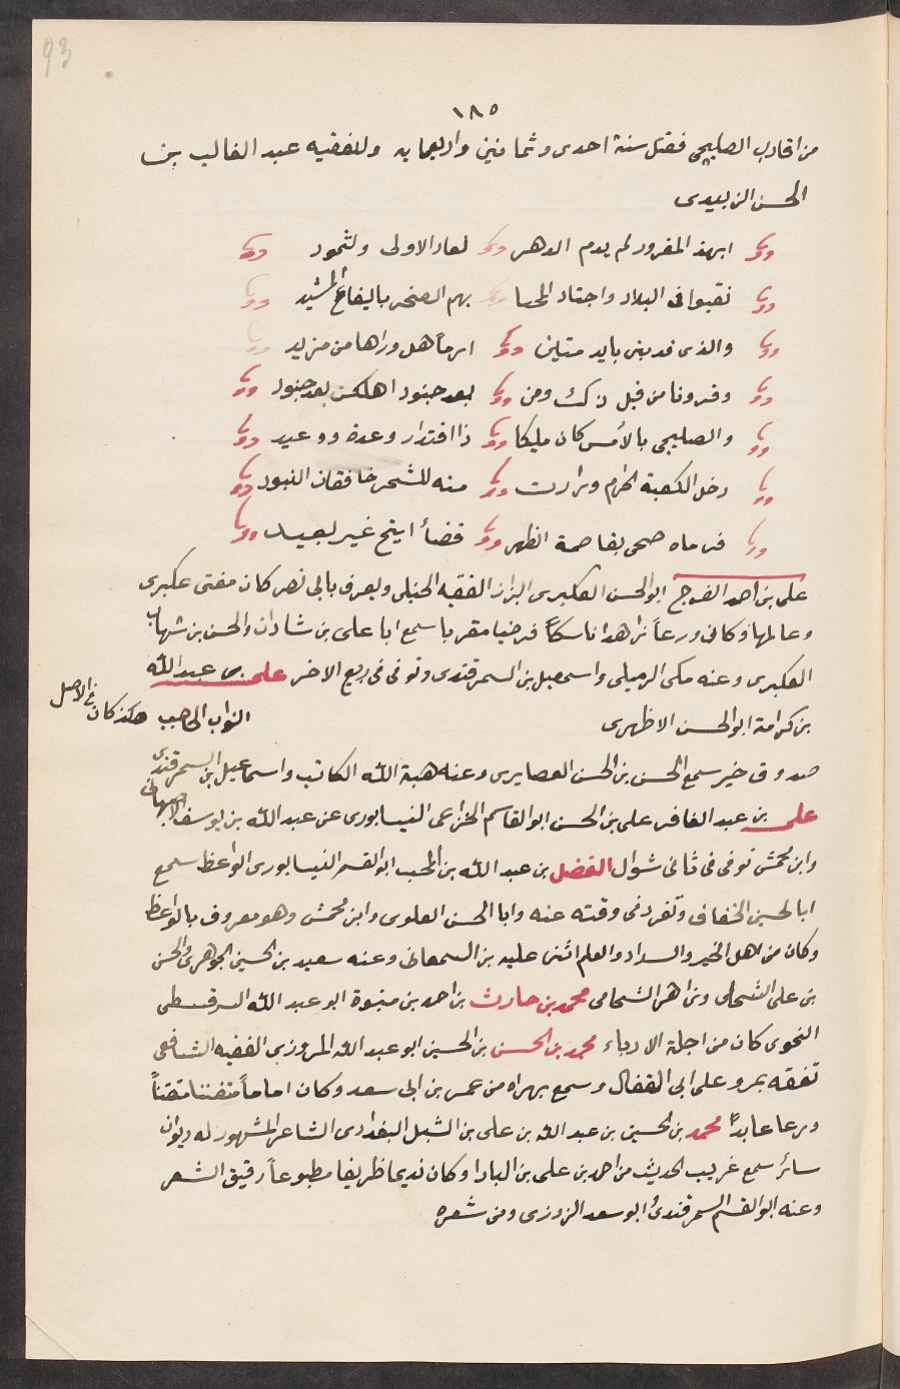 93
١٨٥
من اقارب الصليحى فقتل سنة احدى وثمانين واربعماية وللفقيه عبد الغالب بن
الحسن الزبيدى
ايهذ المغرور لم يدم الدهر لعاد الاولى ولثمود
نقبوا فى البلاد واجتاد بهم الصخر باليفاع المشيد
والذى قد بنى بايد متين ارماً هل وراها من مزيد
وقرونا من قبل ذلك ومن بعد جنود اهلكن بعد جنود
والصليحى بالأمس كان مليكا ذا اقتدار وعدة ووعيد
دخل الكعبة الحرام وزارت منه للشحر خافقات البنود
فرماه ضحى بقاصمة الظهر قضأ اتيح غير بعيد
على بن احمد الفرج ابو الحسن العكبرى البزاز الفقيه الحنبلى ويعرف بابى نصر كان مفتى عكبرى
وعالمها وكان ورعاً زاهدا ناسكاً فرضيا مقريا سمع ابا على بن شاذان والحسن بن شهاب
العكبرى وعنه مكى الرميلى واسمعيل بن السمرقندى وتوفى فى ربيع الاخر على بن عبد الله
بن كرامة ابو الحسن الاظهرى النواب الحاجب هكذ كان فى الاصل
صدوق خير سمع الحسن بن الحسن الغضايرى وعنه هبة الله الكاتب واسماعيل بن السمرقندى
على بن عبد الغافر على بن الحسن ابو القاسم الخزاعى النيسابورى عن عبد الله بن يوسف الاصبهانى
وابن محمش توفى فى ثانى شوال الفضل بن عبد الله بن المحب ابو القسم النيسابورى الواعظ سمع
ابا لحسين الخفاف وتفرد فى وقته عنه وابا الحسن العلوى وابن محمش وهو معروف بالواعظ
وكان من اهل الخير والسداد والعلم اثنى عليه بن السمعانى وعنه سعيد بن الحسين الجوهرى والحسن
بن على الشحامى وزاهر الشحامى محمد بن حارث بن احمد بن منيوة ابو عبد الله السرقسطى
النحوى كان من اجلة الادباء محمد بن الحسن بن الحسين ابو عبد الله المروزى الفقيه الشافعى
تفقه بمرو على ابى القفال وسمع بهراه من عمر بن ابى سعد وكان اماماً متفننا متقناً
ورعا عابداً محمد بن الحسين بن عبد الله بن على بن الشبل البغدادى الشاعر المشهور له ديوان
سائر سمع غريب الحديث من احمد بن على بن البادا وكان نديما ظريفا مطبوعاً رقيق الشعر
وعنه ابو القسم السمرقندى وابو سعد الزوزى ومن شعره